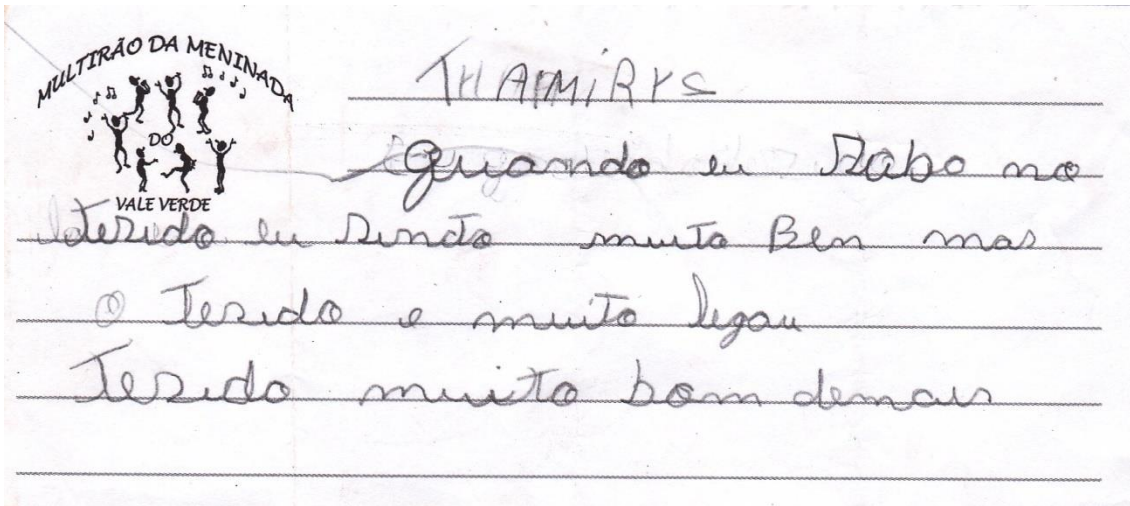 MULTIRÃO DA MENINADA
DO
VALE VERDE
THAMIRYS
Quando eu Sabo no
tesido eu sindo muito Ben mas
o Tesido e muito legau
Tesido muito bom demais